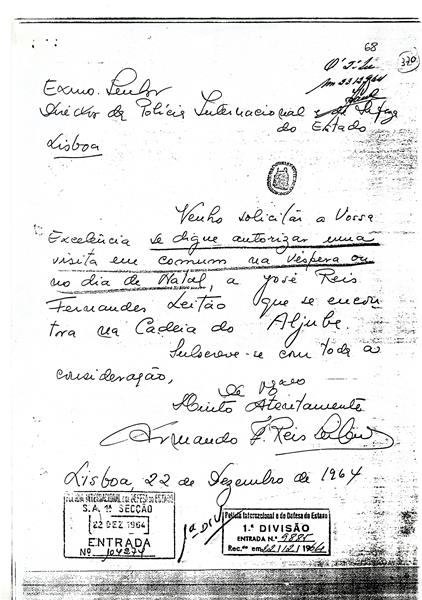 68
320
22/12/964
Exmo. Senhor
Director da Polícia Internacional e de Defeza
do Estado
Lisboa
Venho solicitar a Vossa
Excelência se digne autorizar uma
visita em comum na véspera ou
no dia de Natal, a José Reis
Fernandes Leitão que se encon
tra na Cadeia do Aljube.
Subscreve-se com toda a
consideração,
De V. Exa
Muito Atentamente
Armando F. Reis Leitão
Lisboa, 22 de Dezembro de 1964
POLICIA INTERNACIONAL E DE DEFESA DO ESTADO
S. A. 1ª SECÇÃO
22 DEZ 1964
ENTRADA
Nº 104274
1ª Div
Polícia Internacional e de Defesa do Estado
1.ª DIVISÃO
ENTRADA N.º 9885
Rec.do em 22/12/1964